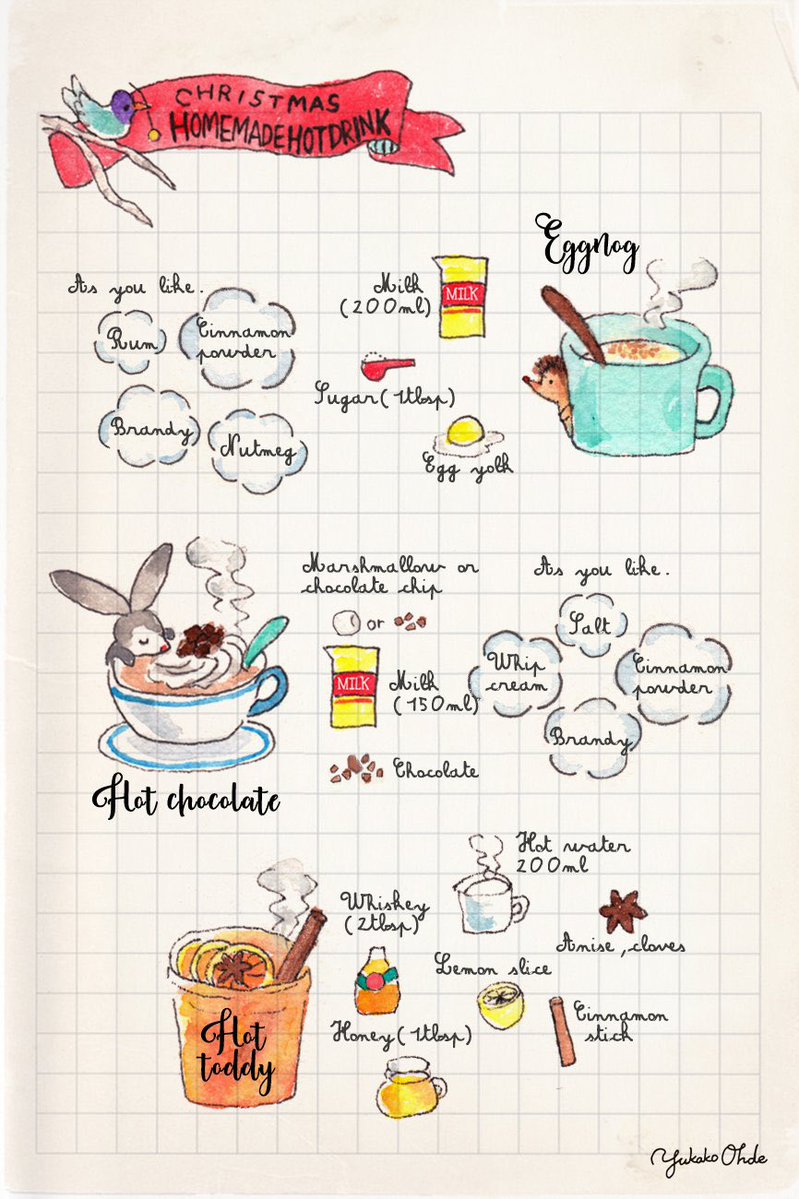 CHRISTMAS
HOMEMADE HOT DRINK
Eggnog
Milk
(200ml)
MILK
Sugar (1tbsp)
Egg yolk
As you like.
Rum
Cinnamon
powder
Brandy
Nutmeg
Hot chocolate
Marshmallow or
chocolate chip
or
MILK
Milk
(150ml)
Chocolate
As you like.
Salt
Whip
cream
Cinnamon
powder
Brandy
Hot
toddy
Hot water
200ml
Whiskey
(2tbsp)
Anise, cloves
Lemon slice
Cinnamon
stick
Honey (1tbsp)
Yukako Ohde